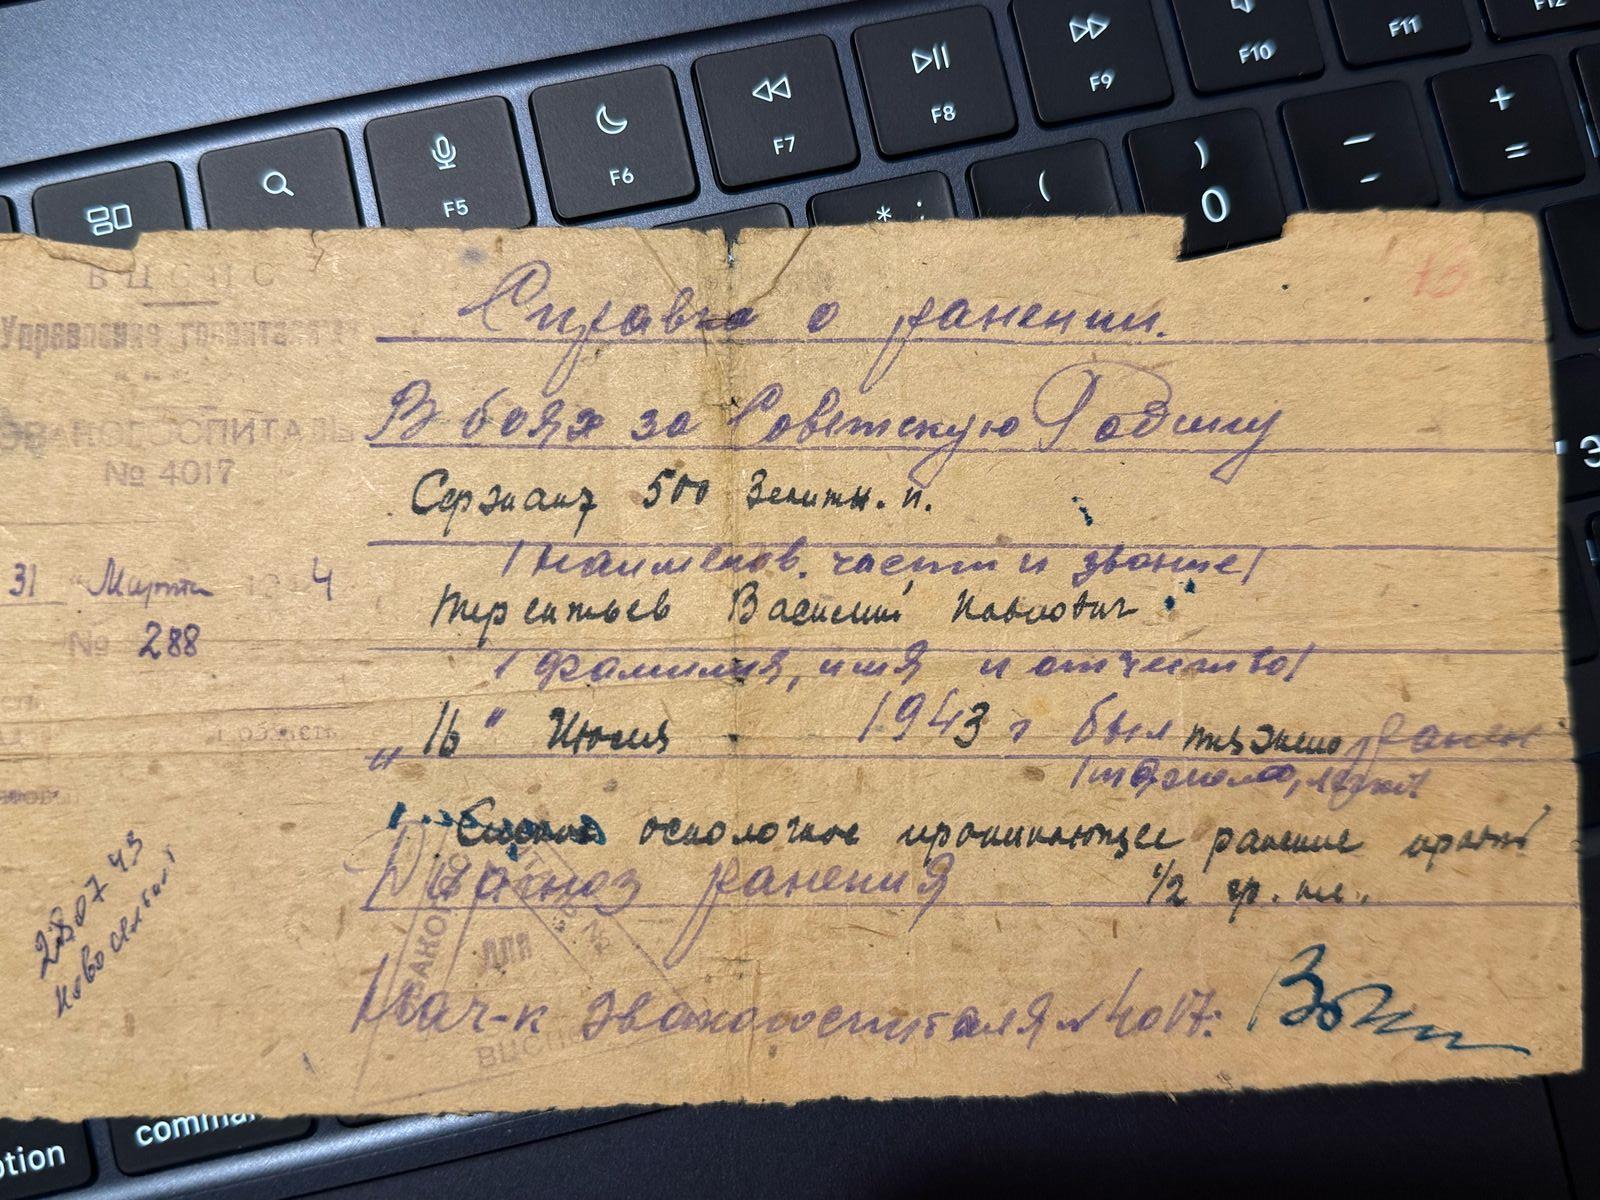 ВЦСПС
Управление госпиталей
ЭВАКОГОСПИТАЛЬ
№ 4017
31 "Марта 194 4
№ 288
28 07 43
Новосельский
Справка о ранении.
В боях за Советскую Родину
Сержант 500 Зенитн. п.
/наименов. части и звание/
Терентьев Василий Павлович
/фамилия, имя и отчество/
„16" Июля 1943 г был тяжело ранен
/тяжело, легко/
Слепое осколочное проникающее ранение правой
Диагноз ранения 1/2 гр. кл.
Нач-к эвакогоспиталя № 4017:
ЭВАКО
ДЛЯ
ВЦСПС
F5
F6
F7
F8
F9
F10
F11
F12
*
:
(
)
0
-
+
=
Э
option
command